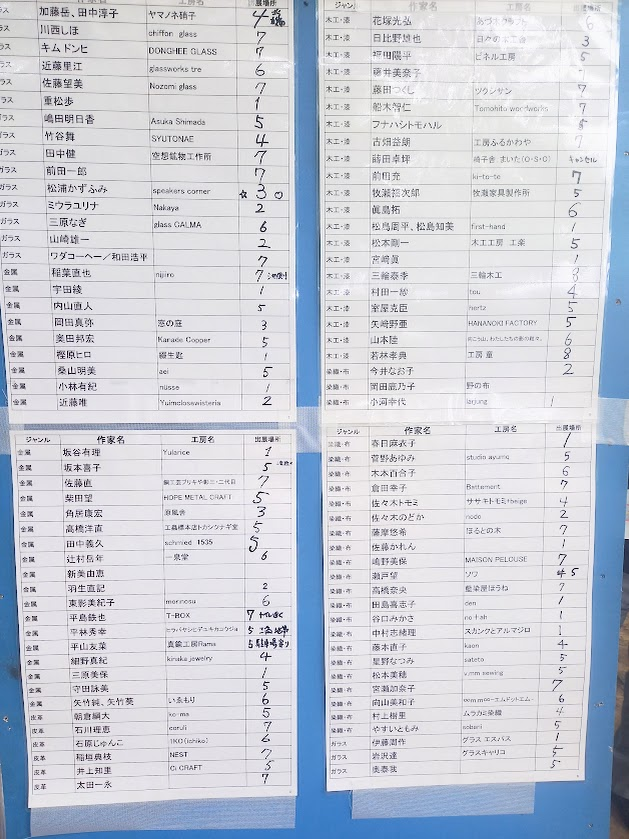 ラス 加藤岳、田中淳子 ヤマノネ硝子 4
ラス 川西しほ chiffon glass 7
ラス キム ドンヒ DONGHEE GLASS 7
ラス 近藤里江 glassworks tre 6
ラス 佐藤望美 Nozomi glass 7
ラス 重松歩 1
ラス 嶋田明日香 Asuka Shimada 5
ラス 竹谷舞 SYUTONAE 4
ラス 田中健 空想鉱物工作所 7
ラス 前田一郎 7
ガラス 松浦かずふみ speakers corner ☆ 3 ○
ガラス ミウラユリナ Nakaya 2
ガラス 三原なぎ glass CALMA 6
ガラス 山崎雄一 2
ガラス ワダコーヘー/和田浩平 7
金属 稲葉直也 nijiro 7
金属 宇田綾 1
金属 内山直人 5
金属 岡田真弥 窓の庭 3
金属 奥田邦宏 Karade Copper 5
金属 樫原ヒロ 綴生匙 1
金属 桑山明美 aei 5
金属 小林有紀 nüsse 1
金属 近藤唯 Yuimoloswisteria 2
ジャンル 作家名 工房名 出展場所
金属 坂谷有理 Yulance 1
金属 坂本喜子 5
金属 佐藤直 7
金属 柴田望 HOPE METAL CRAFT 5
金属 角居康宏 原風舎 3
金属 高橋洋直 工具標本店トカシツナギ堂 5
金属 田中義久 schmied 1535 5
金属 辻村岳年 一泉堂 6
金属 新美由恵
金属 羽生直記 2
金属 東影美紀子 morinosa 6
金属 平島鉄也 T-BOX 7
金属 平林秀幸 ヒラバヤシヒデユキカニクジョ 5
金属 平山友菜 真鍮工房Rams 5
金属 細野真紀 kinaka jewelry 4
金属 三原美保 1
金属 守田詠美 5
金属 矢竹純、矢竹葵 いゑもり 6
皮革 朝倉綱大 ko-ma 5
皮革 石川理恵 coruli 7
皮革 石原じゅんこ 1KO(ichiko) 6
皮革 稲垣典枝 NEST 7
皮革 井上知里 Ci CRAFT 5
皮革 太田一永 7
ジャン 作家名 工房名 出展場所
木工・漆 花塚光弘 あづみクラフト 6
木工・漆 日比野雄也 日々の木工番 3
木工・漆 福田陽平 ピネル工房 5
木工・漆 藤井美奈子 7
木工・漆 藤田つくし ツクシサン 7
木工・漆 船木智仁 Tomohito woodworks 7
木工・漆 フナハシトモハル 8
木工・漆 古畑益朗 工房ふるかわや 7
木工・漆 蒔田卓坪 椅子舎 まいた(O・S・O) キャンセル
木工・漆 前田充 ki-to-te 7
木工・漆 牧瀬福次郎 牧瀬家具製作所 5
木工・漆 眞島拓 6
木工・漆 松島周平、松島知美 first-hand 1
木工・漆 松本剛一 木工工房 工楽 5
木工・漆 宮崎眞 1
木工・漆 三輪泰季 三輪木工 8
木工・漆 村田一紗 tou 4
木工・漆 室屋克臣 hertz 5
木工・漆 矢﨑野亜 HANANOKI FACTORY 5
木工・漆 山本陸 6
木工・漆 若林孝典 工房 童 8
染織・布 今井なお子 2
染織・布 岡田鹿乃子 野の布
染織・布 小河幸代 laijung 1
ジャンル 作家名 工房名 出展場所
染織・布 春日麻衣子 1
染織・布 菅野あゆみ studio ayumo 5
染織・布 木本百合子 6
染織・布 倉田幸子 Battement 7
染織・布 佐々木トモミ ササキトモミ+beige 4
染織・布 佐々木のどか node 2
染織・布 薩摩悠希 ほるとの木 7
染織・布 佐藤かれん 1
染織・布 嶋野美保 MAISON PELOUSE 7
染織・布 瀬戸望 ソワ 5
染織・布 高橋奈央 藍染屋ほうね 7
染織・布 田島喜志子 den 1
染織・布 谷口みかさ no hah 1
染織・布 中村志緒理 スカンクとアルマジロ 1
染織・布 藤本直子 kaon 4
染織・布 星野なつみ sateto 5
染織・布 松本美穂 v.mm sewing 5
染織・布 宮瀬加奈子 7
染織・布 向山美和子 6
染織・布 村上樹里 ムラカミ染織 4
染織・布 やすいともみ sobani 5
ガラス 伊藤周作 グラス エスパス 1
ガラス 岩沢達 グラスキャリコ 5
ガラス 奥泰我 5